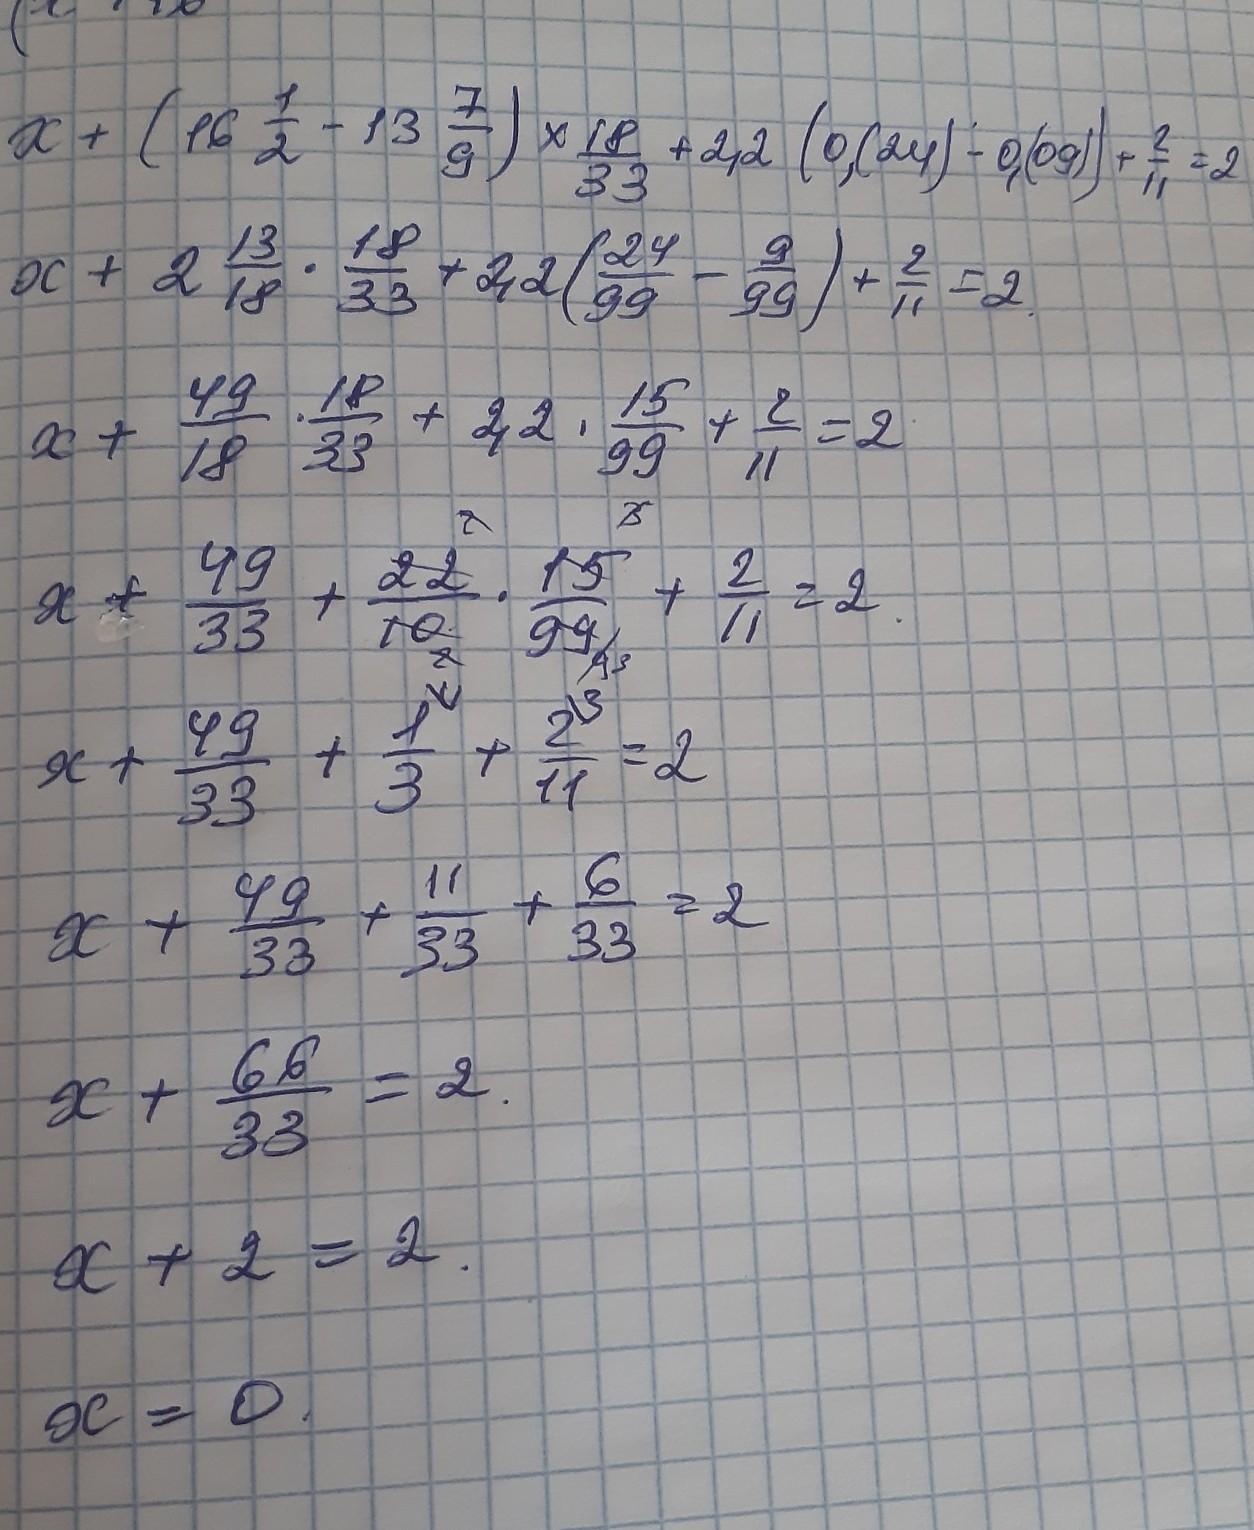 x + (16 1/2 - 13 7/9) × 18/33 + 2,2 (0,(24) - 0,(09)) + 2/11 = 2
x + 2 13/18 · 18/33 + 2,2 (24/99 - 9/99) + 2/11 = 2.
x + 49/18 · 18/33 + 2,2 · 15/99 + 2/11 = 2
x + 49/33 + 22/10 · 15/99 + 2/11 = 2.
x + 49/33 + 1/3 + 2/11 = 2
x + 49/33 + 11/33 + 6/33 = 2
x + 66/33 = 2.
x + 2 = 2.
x = 0.